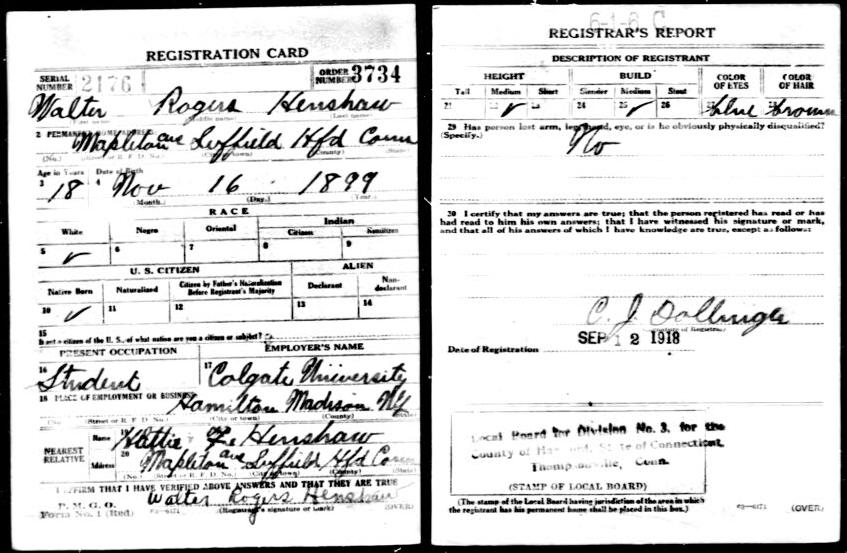 REGISTRATION CARD
SERIAL NUMBER 2176
ORDER NUMBER 3734
Walter Rogers Henshaw
(Middle name) (Last name)
2 PERMANENT HOME ADDRESS
Mapleton ave Suffield Hfd Conn
(No.) (Street or R. F. D. No.) (County) (State)
Age in Years Date of Birth
3 18 4 Nov 16 1899
(Month.) (Day.) (Year.)
RACE
White Negro Oriental Indian
Citizen Noncitizen
5 ✓ 6 7 8 9
U. S. CITIZEN ALIEN
Native Born Naturalized Citizen by Father's Naturalization Before Registrant's Majority Declarant Non-declarant
10 ✓ 11 12 13 14
15
If not a citizen of the U. S., of what nation are you a citizen or subject?
PRESENT OCCUPATION EMPLOYER'S NAME
16 Student 17 Colgate University
18 PLACE OF EMPLOYMENT OR BUSINESS
Hamilton Madison NY
(No.) (Street or R. F. D. No.) (City or town) (County) (State)
NEAREST RELATIVE
Name 19 Hattie F. Henshaw
Address 20 Mapleton ave Suffield Hfd Conn
(No.) (Street or R. F. D. No.) (City or town) (County) (State)
I AFFIRM THAT I HAVE VERIFIED ABOVE ANSWERS AND THAT THEY ARE TRUE
P. M. G. O.
Form No. 1 (Red)
Walter Rogers Henshaw
(Registrant's signature or mark) (OVER)
6-1-6 C
REGISTRAR'S REPORT
DESCRIPTION OF REGISTRANT
HEIGHT BUILD COLOR OF EYES COLOR OF HAIR
Tall Medium Short Slender Medium Stout
21 22 ✓ 23 24 25 ✓ 26 27 blue 28 brown
29 Has person lost arm, leg, hand, eye, or is he obviously physically disqualified?
(Specify.) No
30 I certify that my answers are true; that the person registered has read or has
had read to him his own answers; that I have witnessed his signature or mark,
and that all of his answers of which I have knowledge are true, except as follows:
C. J. Dollinger
(Signature of Registrar)
Date of Registration SEP 12 1918
Local Board for Division No. 3, for the
County of Hartford, State of Connecticut,
Thompsonville, Conn.
(STAMP OF LOCAL BOARD)
(The stamp of the Local Board having jurisdiction of the area in which
the registrant has his permanent home shall be placed in this box.)
(OVER)